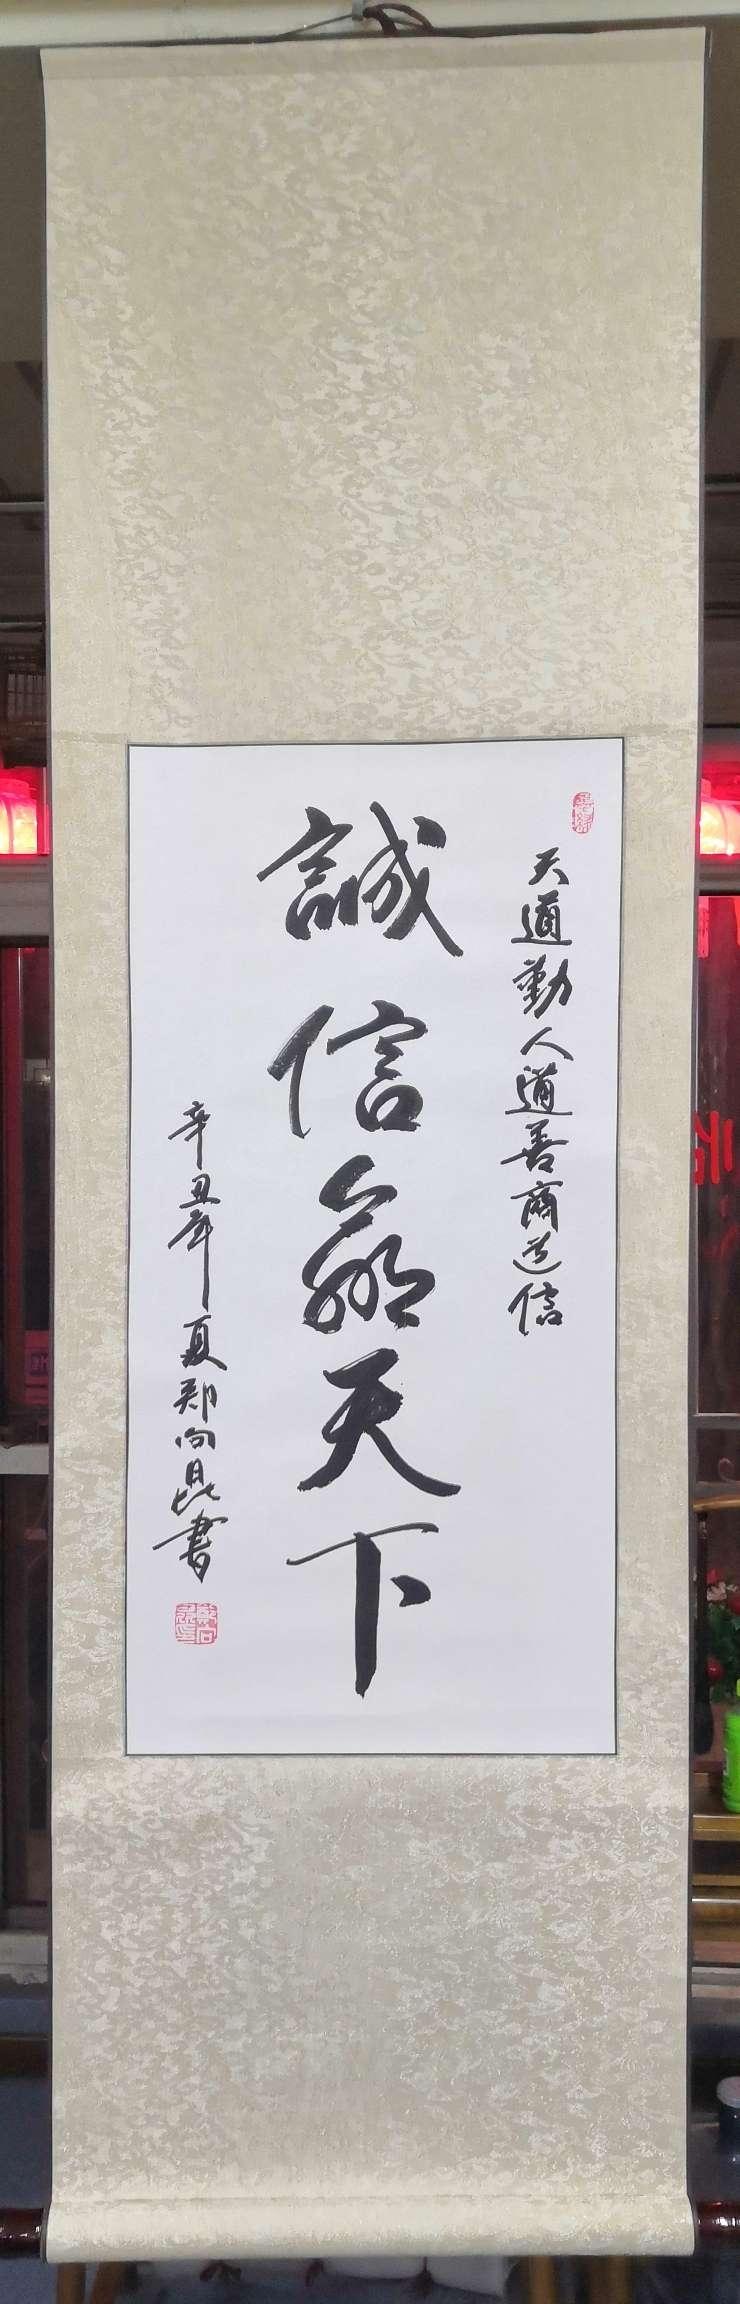 天道勤人道善商道信
誠信贏天下
辛丑年夏郑向昆書